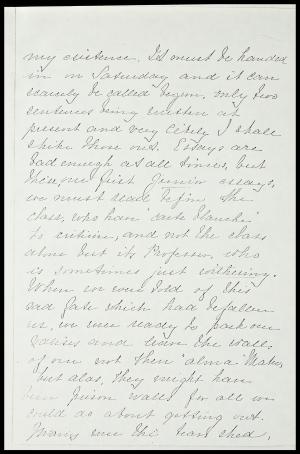 my existence. It must be handed
in on Saturday and it can
scarcely be called begun, only two
sentences being written at
present and very likely I shall
strike those out. Essays are
bad enough at all times, but
these, our first Junior essays,
we must read before the
class, who have carte blanche
to criticise, and not the class
alone but its Professor who
is sometimes just withering.
When we were told of this
sad fate which had befallen
us, we were ready to pack our
valises and leave the walls
of our not then alma Mater,
but alas, they might have
been prison walls for all we
could do about getting out.
Many were the tears shed,